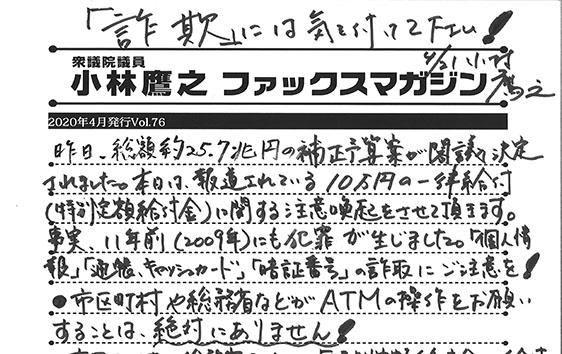 「詐欺」には気を付けて下さい!
4/21 小林鷹之
衆議院議員
小林鷹之 ファックスマガジン
2020年4月発行Vol.76
昨日、総額約25.7兆円の補正予算案が閣議決定
されました。本日は、報道されている10万円の一律給付
(特別定額給付金)に関する注意喚起をさせて頂きます。
事実、11年前(2009年)にも犯罪が生じました。「個人情
報」「通帳、キャッシュカード」「暗証番号」の詐取にご注意を!
●市区町村や総務省などがATMの操作をお願い
することは、絶対にありません!